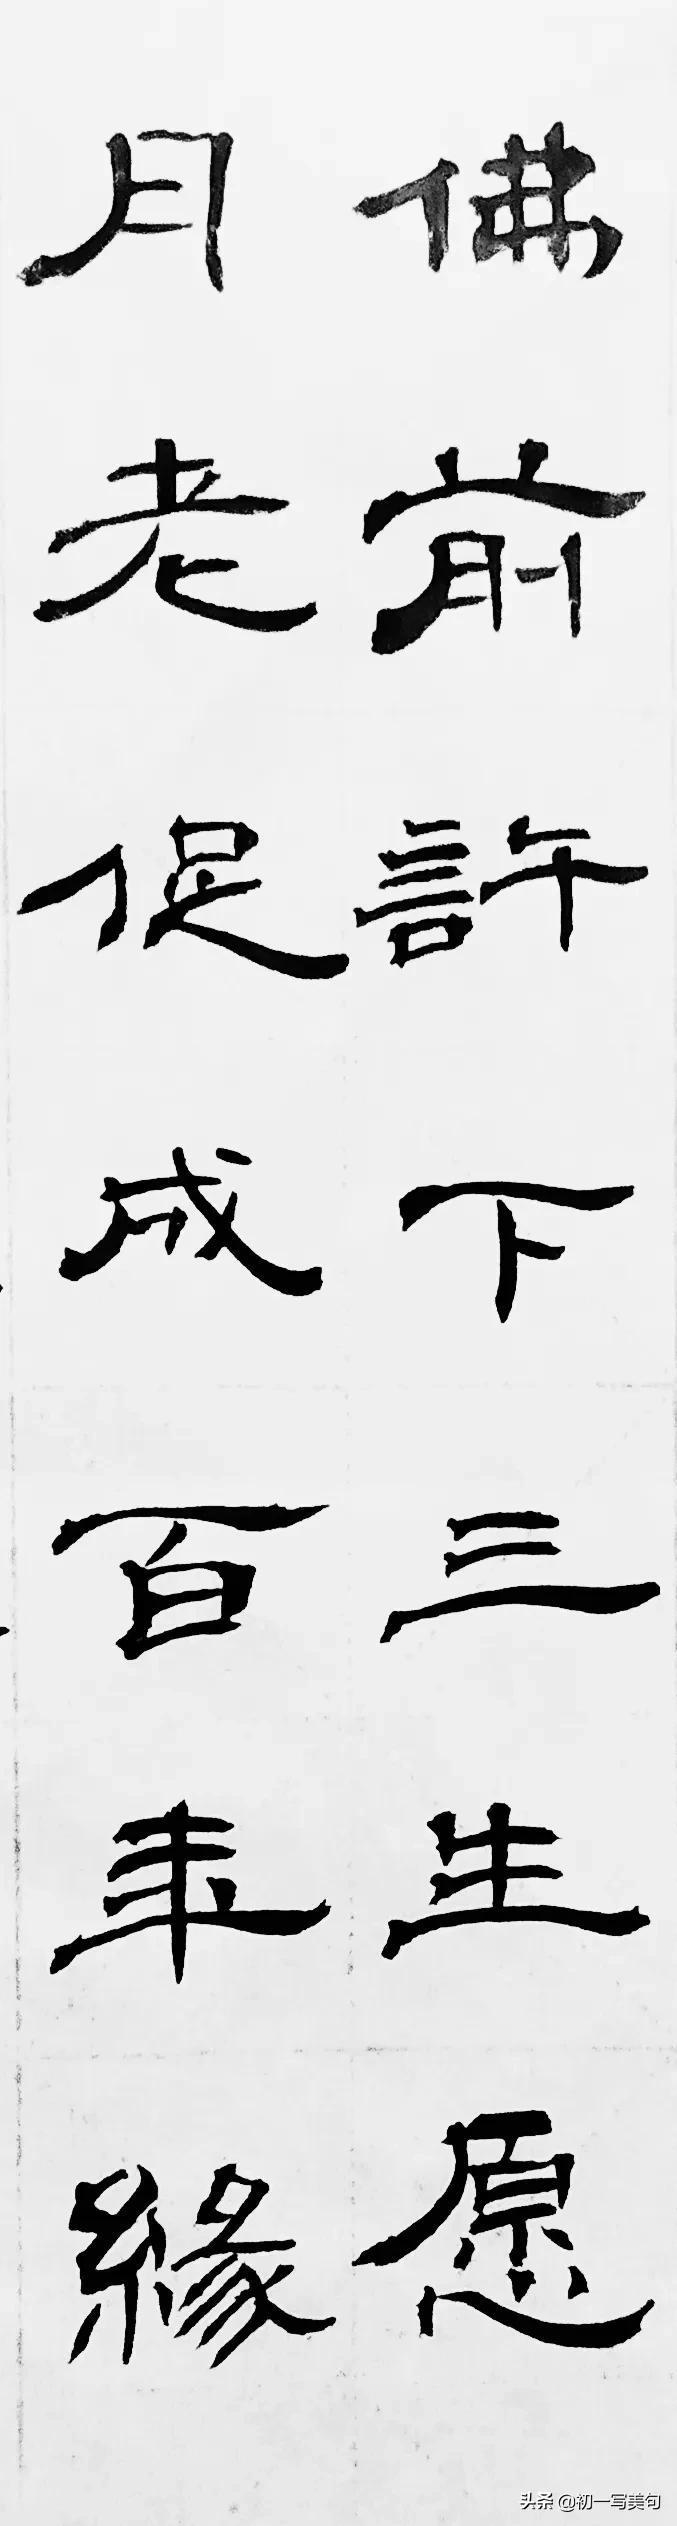 佛前許下三生愿
月老促成百年緣
头条 @初一写美句